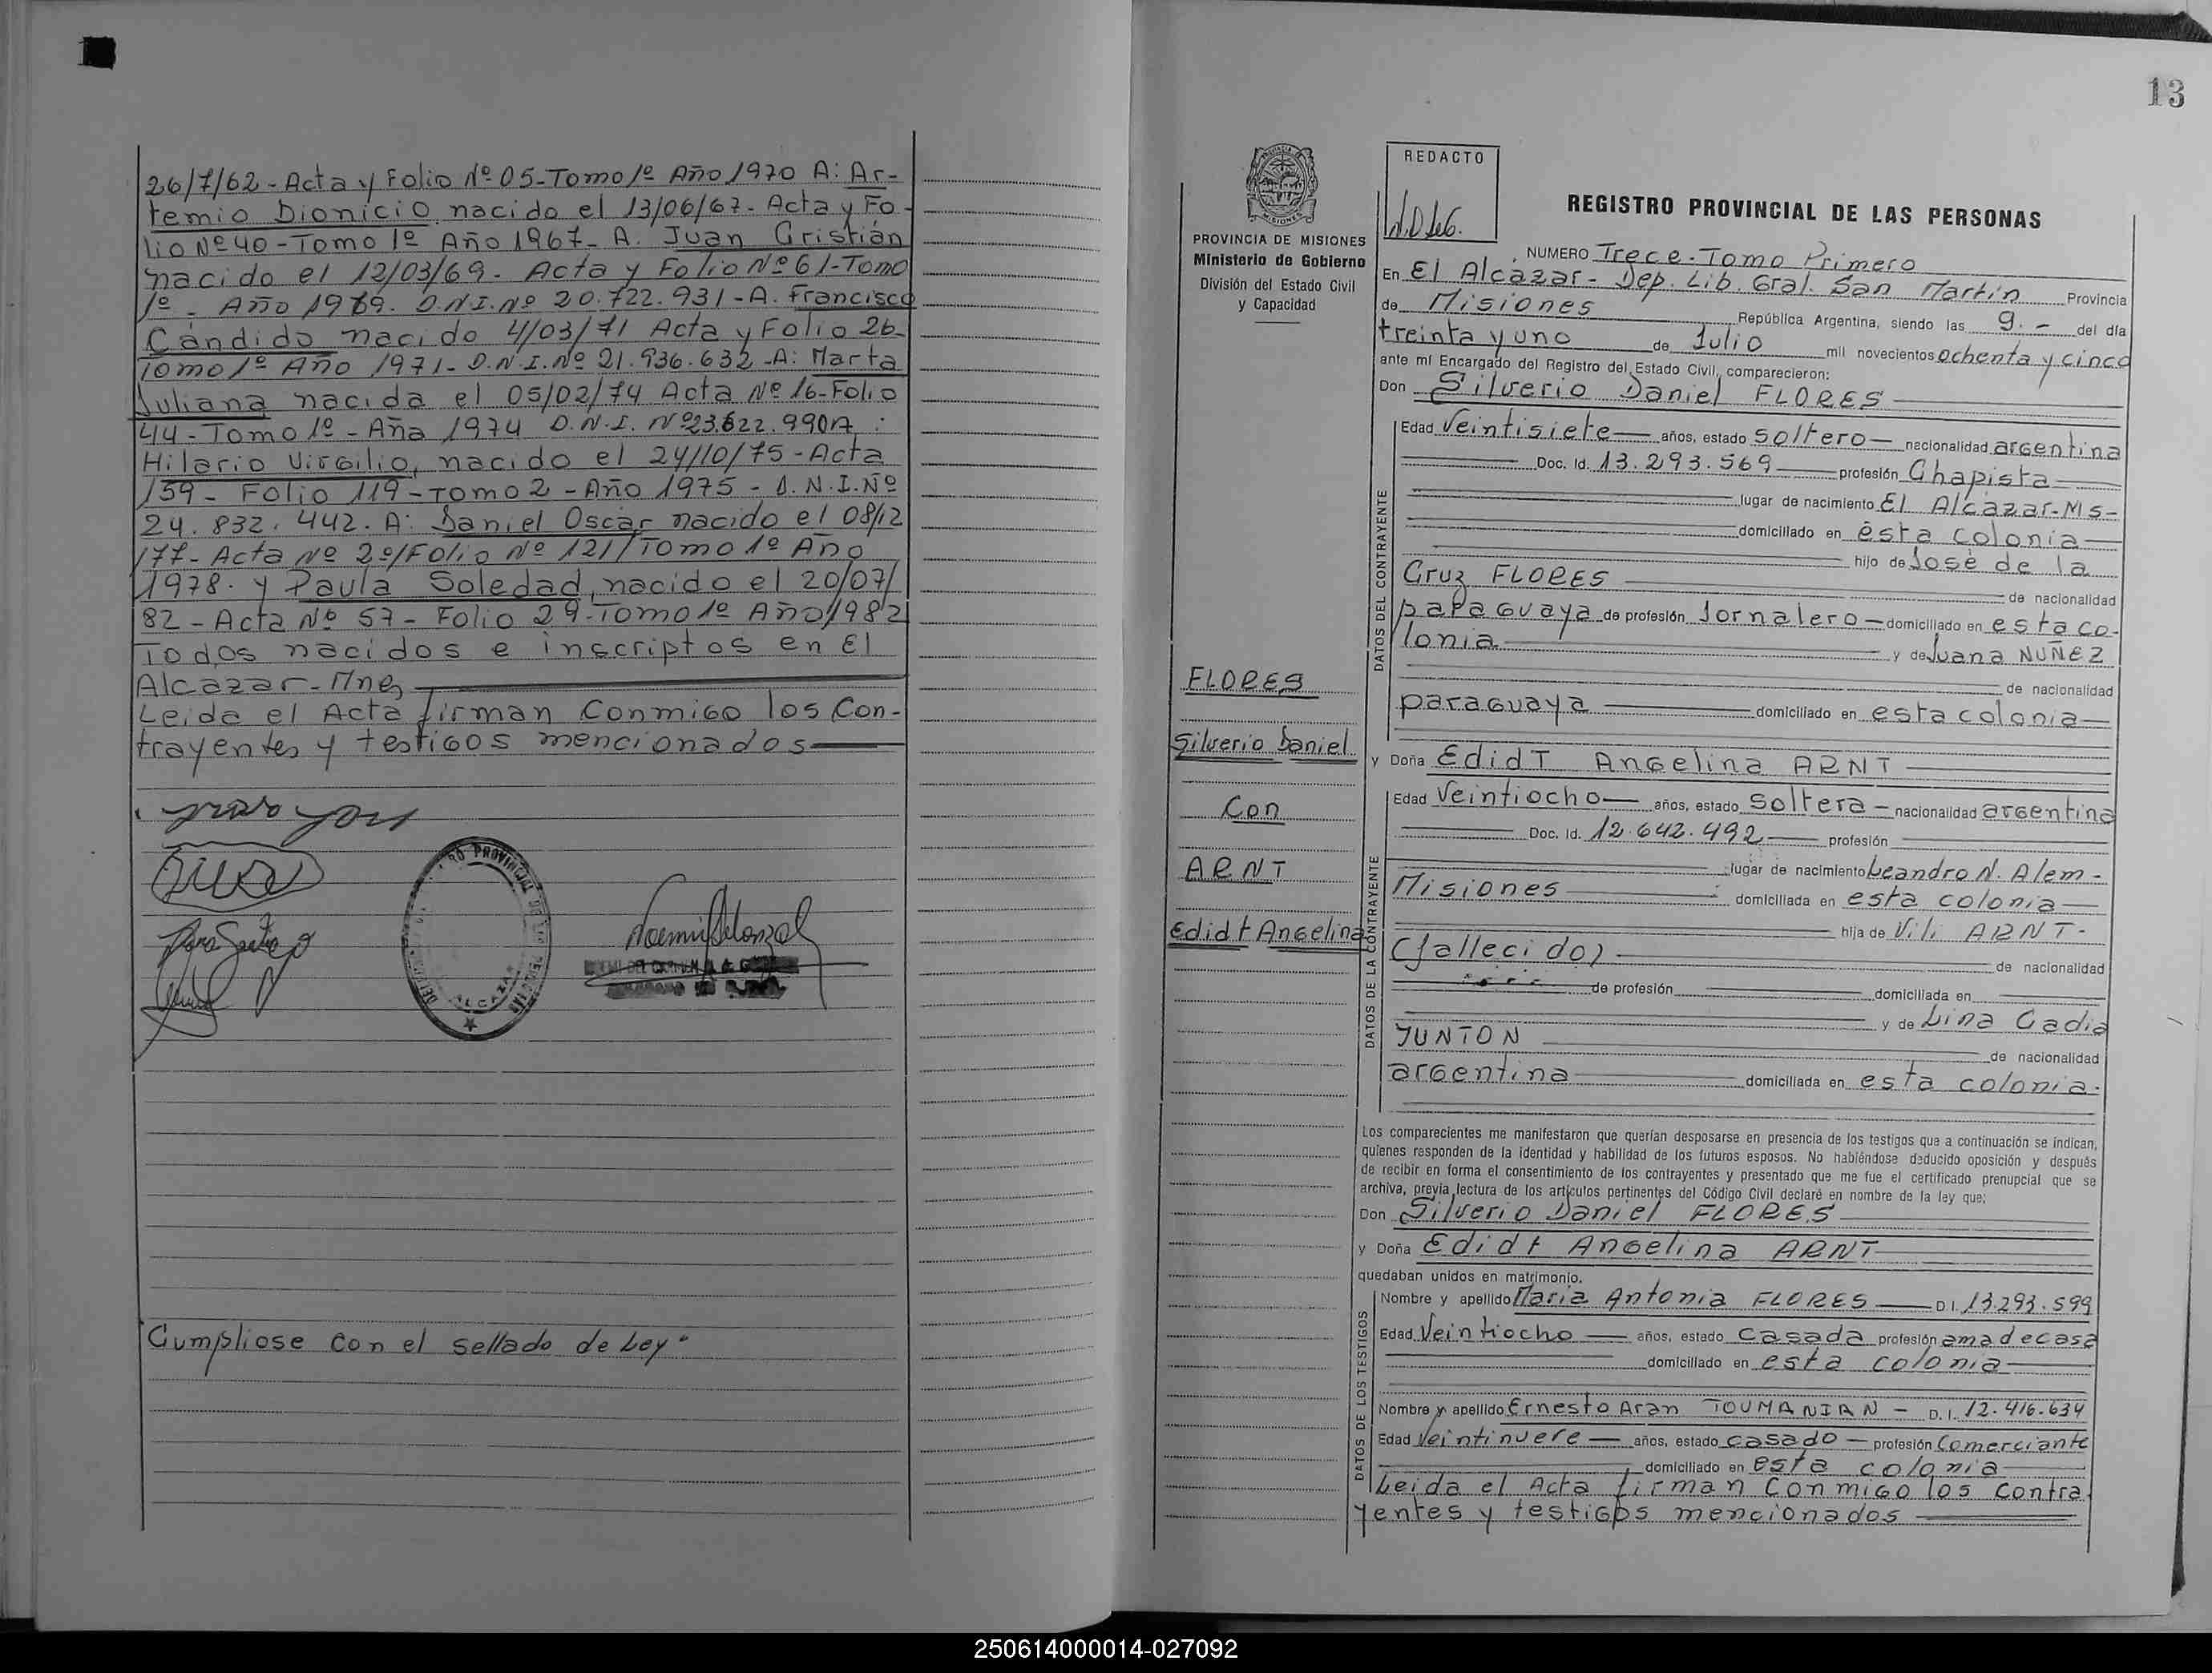 26/7/62 - Acta y Folio Nº 05 - Tomo 1º Año 1970 A: Ar-
temio Dionicio nacido el 13/06/67 - Acta y Fo-
lio Nº 40 - Tomo 1º Año 1967 - A. Juan Cristián
nacido el 12/03/69 - Acta y Folio Nº 61 - Tomo
1º - Año 1969. D.N.I. Nº 20.722.931 - A. Francisco
Cándido nacido 4/03/71 Acta y Folio 26
Tomo 1º Año 1971 - D.N.I. Nº 21.936.632 - A: Marta
Juliana nacida el 05/02/74 Acta Nº 16 - Folio
44 - Tomo 1º - Año 1974 D.N.I. Nº 23.622.990 A:
Hilario Virgilio, nacido el 24/10/75 - Acta
159 - Folio 119 - Tomo 2 - Año 1975 - D.N.I. Nº
24.832.442. A: Daniel Oscar nacido el 08/12
/77 - Acta Nº 20/Folio Nº 121/Tomo 1º Año
1978. y Paula Soledad, nacido el 20/07/
82 - Acta Nº 57 - Folio 29 - Tomo 1º Año 1982
Todos nacidos e inscriptos en El
Alcazar - Mnes
Leida el Acta firman conmigo los con-
trayentes y testigos mencionados
Cumpliose con el sellado de Ley.
13
REDACTO
PROVINCIA DE MISIONES
Ministerio de Gobierno
División del Estado Civil
y Capacidad
REGISTRO PROVINCIAL DE LAS PERSONAS
NUMERO Trece - Tomo Primero
En El Alcázar - Dep. Lib. Gral. San Martin Provincia
de Misiones República Argentina, siendo las 9.- del día
treinta y uno de Julio mil novecientos ochenta y cinco
ante mí Encargado del Registro del Estado Civil, comparecieron:
Don Silverio Daniel FLORES
Edad Veintisiete años, estado soltero nacionalidad argentina
Doc. Id. 13.293.569 profesión Chapista
lugar de nacimiento El Alcazar - Ms -
domiciliado en ésta colonia
hijo de José de la
Cruz FLORES
de nacionalidad
paraguaya de profesión Jornalero domiciliado en esta co-
lonia y de Juana NUÑEZ
de nacionalidad
paraguaya domiciliado en esta colonia
DATOS DEL CONTRAYENTE
FLORES
Silverio Daniel
Con
ARNT
Edidt Angelina
y Doña EdidT Angelina ARNT
Edad Veintiocho años, estado Soltera nacionalidad argentina
Doc. Id. 12.642.492 profesión
lugar de nacimiento Leandro N. Alem -
Misiones domiciliada en esta colonia
hija de Vili ARNT -
(fallecido)
de nacionalidad
de profesión domiciliada en
y de Lina Cadia
YUNTON
de nacionalidad
argentina domiciliada en esta colonia.
DATOS DE LA CONTRAYENTE
Los comparecientes me manifestaron que querían desposarse en presencia de los testigos que a continuación se indican,
quienes responden de la identidad y habilidad de los futuros esposos. No habiéndose deducido oposición y después
de recibir en forma el consentimiento de los contrayentes y presentado que me fue el certificado prenupcial que se
archiva, previa lectura de los artículos pertinentes del Código Civil declaré en nombre de la ley que:
Don Silverio Daniel FLORES
y Doña Edidt Angelina ARNT
quedaban unidos en matrimonio.
Nombre y apellido Maria Antonia FLORES D.I. 13.293.599
Edad Veintiocho años, estado Casada profesión ama de casa
domiciliado en esta colonia
Nombre y apellido Ernesto Aran TOUMANIAN - D.I. 12.416.634
Edad Veintinueve años, estado casado profesión Comerciante
domiciliado en esta colonia
DATOS DE LOS TESTIGOS
Leida el Acta firman conmigo los contra
yentes y testigos mencionados
250614000014-027092